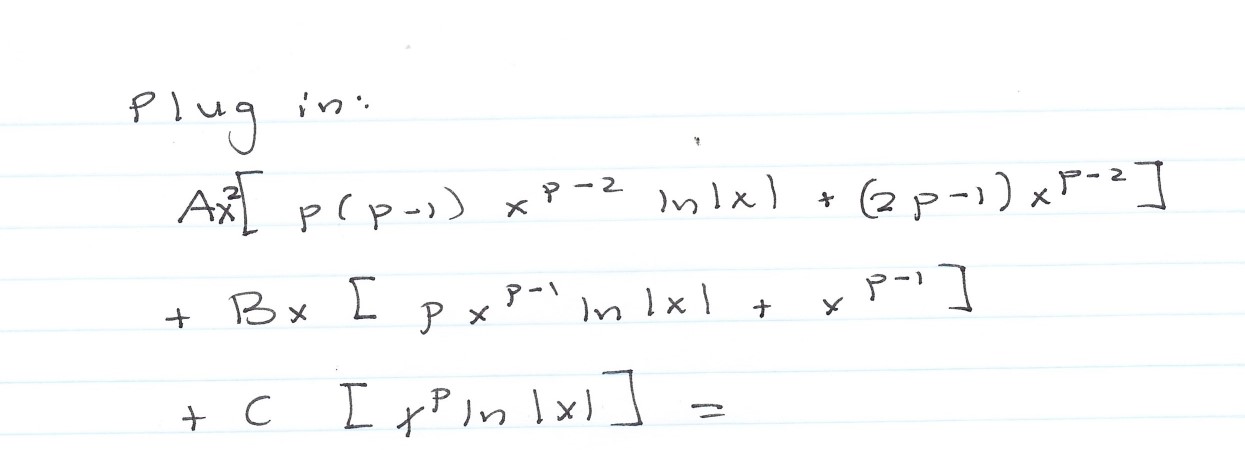 Plug in:
Ax²[ p(p-1) x^{p-2} ln|x| + (2p-1) x^{p-2} ]
+ Bx [ p x^{p-1} ln|x| + x^{p-1} ]
+ C [ x^p ln|x| ] =